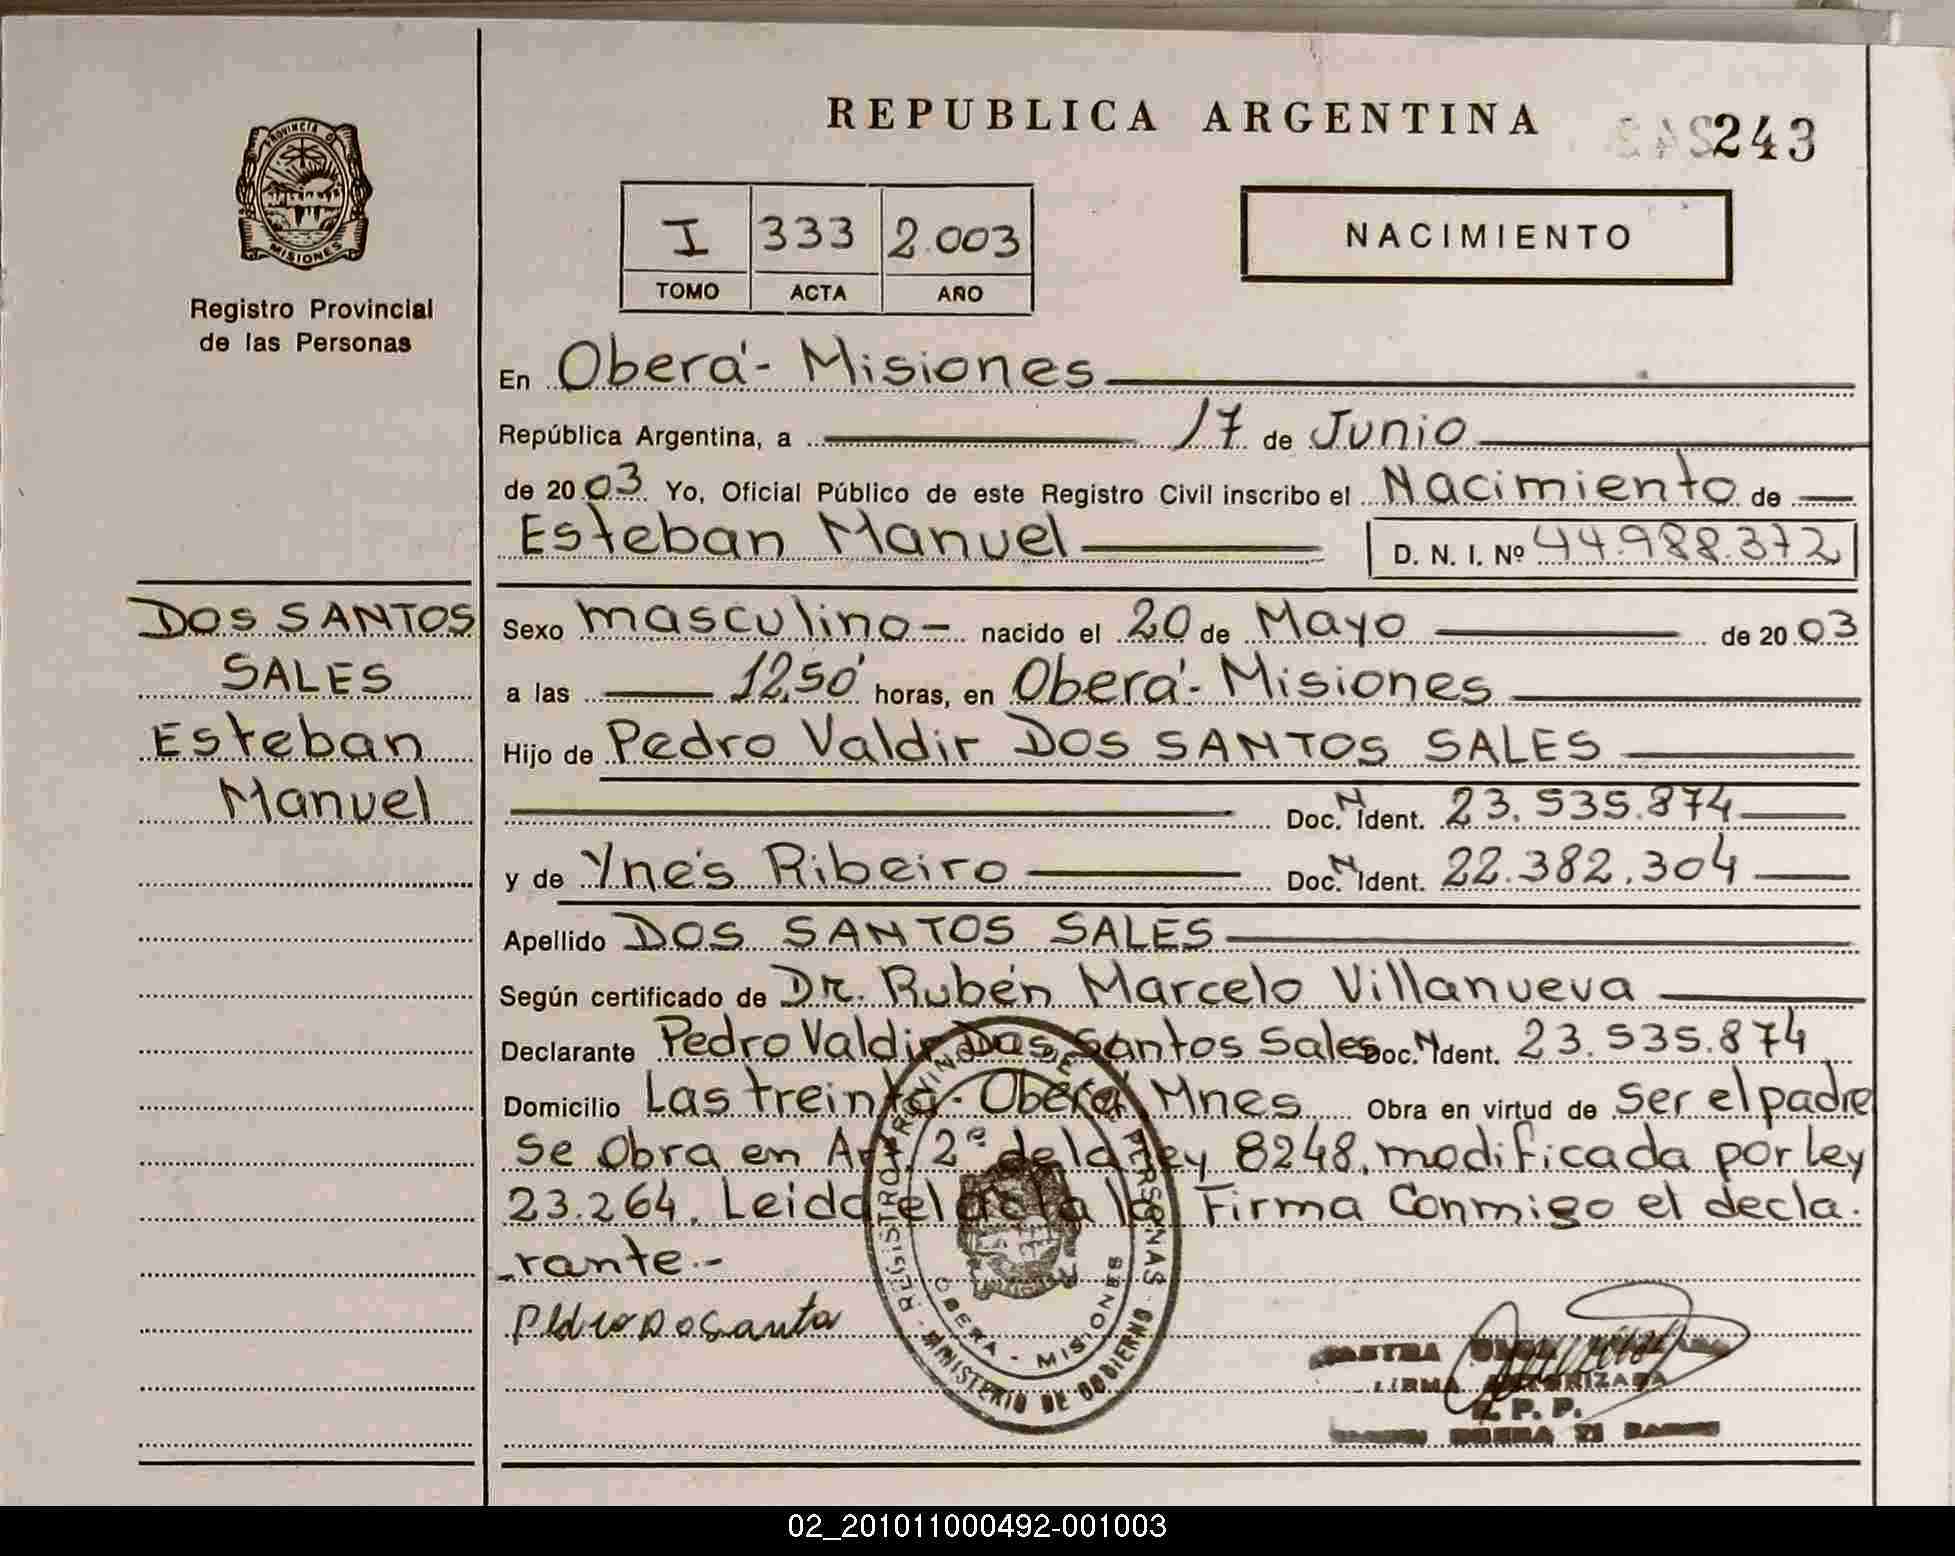 REPUBLICA ARGENTINA
243
PROVINCIA D
MISIONES
Registro Provincial
de las Personas
I 333 2.003
TOMO ACTA AÑO
NACIMIENTO
En Oberá - Misiones
República Argentina, a 17 de Junio
de 2003 Yo, Oficial Público de este Registro Civil inscribo el Nacimiento de
Esteban Manuel D. N. I. Nº 44.988.372
DOS SANTOS
SALES
Esteban
Manuel
Sexo masculino - nacido el 20 de Mayo de 2003
a las 12,50 horas, en Oberá - Misiones
Hijo de Pedro Valdir DOS SANTOS SALES
Doc. N Ident. 23.535.874
y de Ynés Ribeiro Doc. N Ident. 22.382.304
Apellido DOS SANTOS SALES
Según certificado de Dr. Rubén Marcelo Villanueva
Declarante Pedro Valdir Dos Santos Sales Doc. N Ident. 23.535.874
Domicilio Las treinta - Oberá Mnes Obra en virtud de Ser el padre
Se Obra en Art. 2º de la ley 8248, modificada por ley
23.264. Leida el acta la Firma Conmigo el decla.
-rante.-
REGISTRO PROVINCIAL DE LAS PERSONAS
OBERA - MISIONES
MINISTERIO DE GOBIERNO
FIRMA AUTORIZADA
R. P. P.
02_201011000492-001003